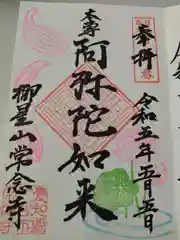 奉拝
令和五年五月五日
本尊
阿弥陀如来
御星山常念寺